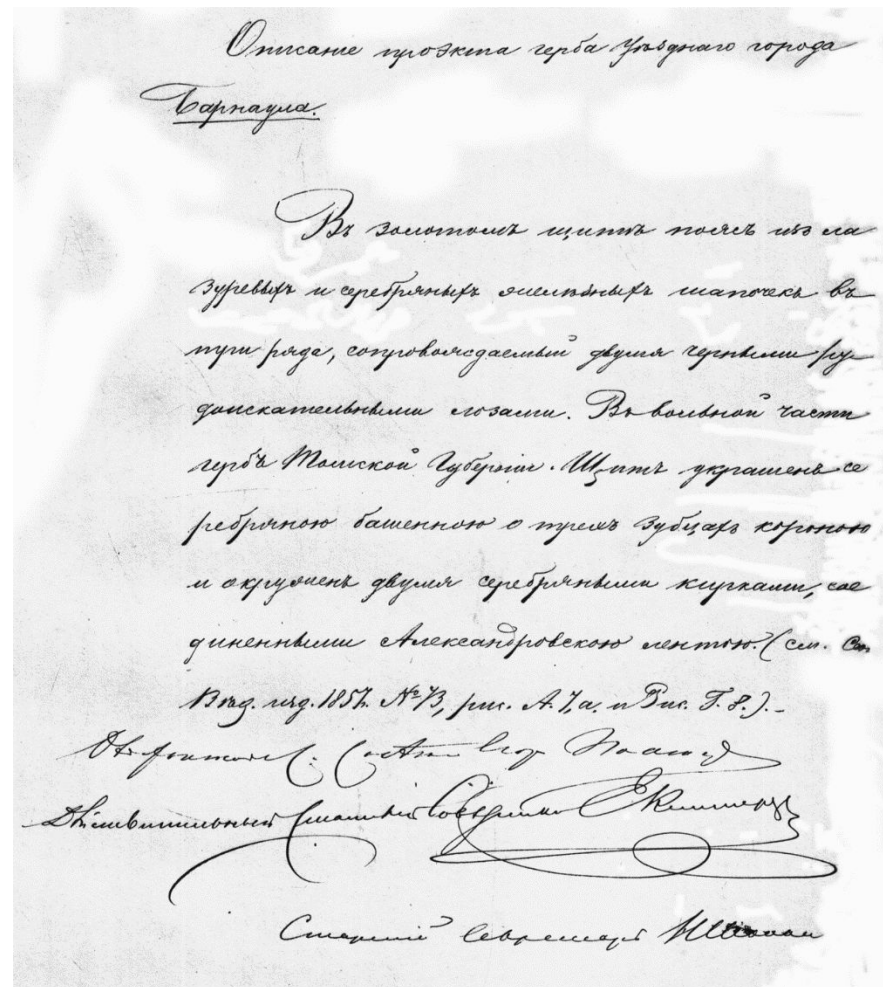 Описаніе проэкта герба Уѣзднаго города
Барнаула.
Въ золотомъ щитѣ поясъ изъ ла
зуревыхъ и серебряныхъ желѣзныхъ шапочекъ въ
три ряда, сопровождаемый двумя черными ру
доискательными лозами. Въ вольной части
гербъ Томской Губерніи. Щитъ украшенъ се
ребряною башенною о трехъ зубцахъ короною
и окруженъ двумя серебряными кирками, сое
диненными Александровскою лентою. (см. Сн.
Взд. изд. 1857. № 13, рис. А. 7, а. и Рис. Г. 8.).-
Дѣйствительный Статскій Совѣтникъ
Старшій Секретарь